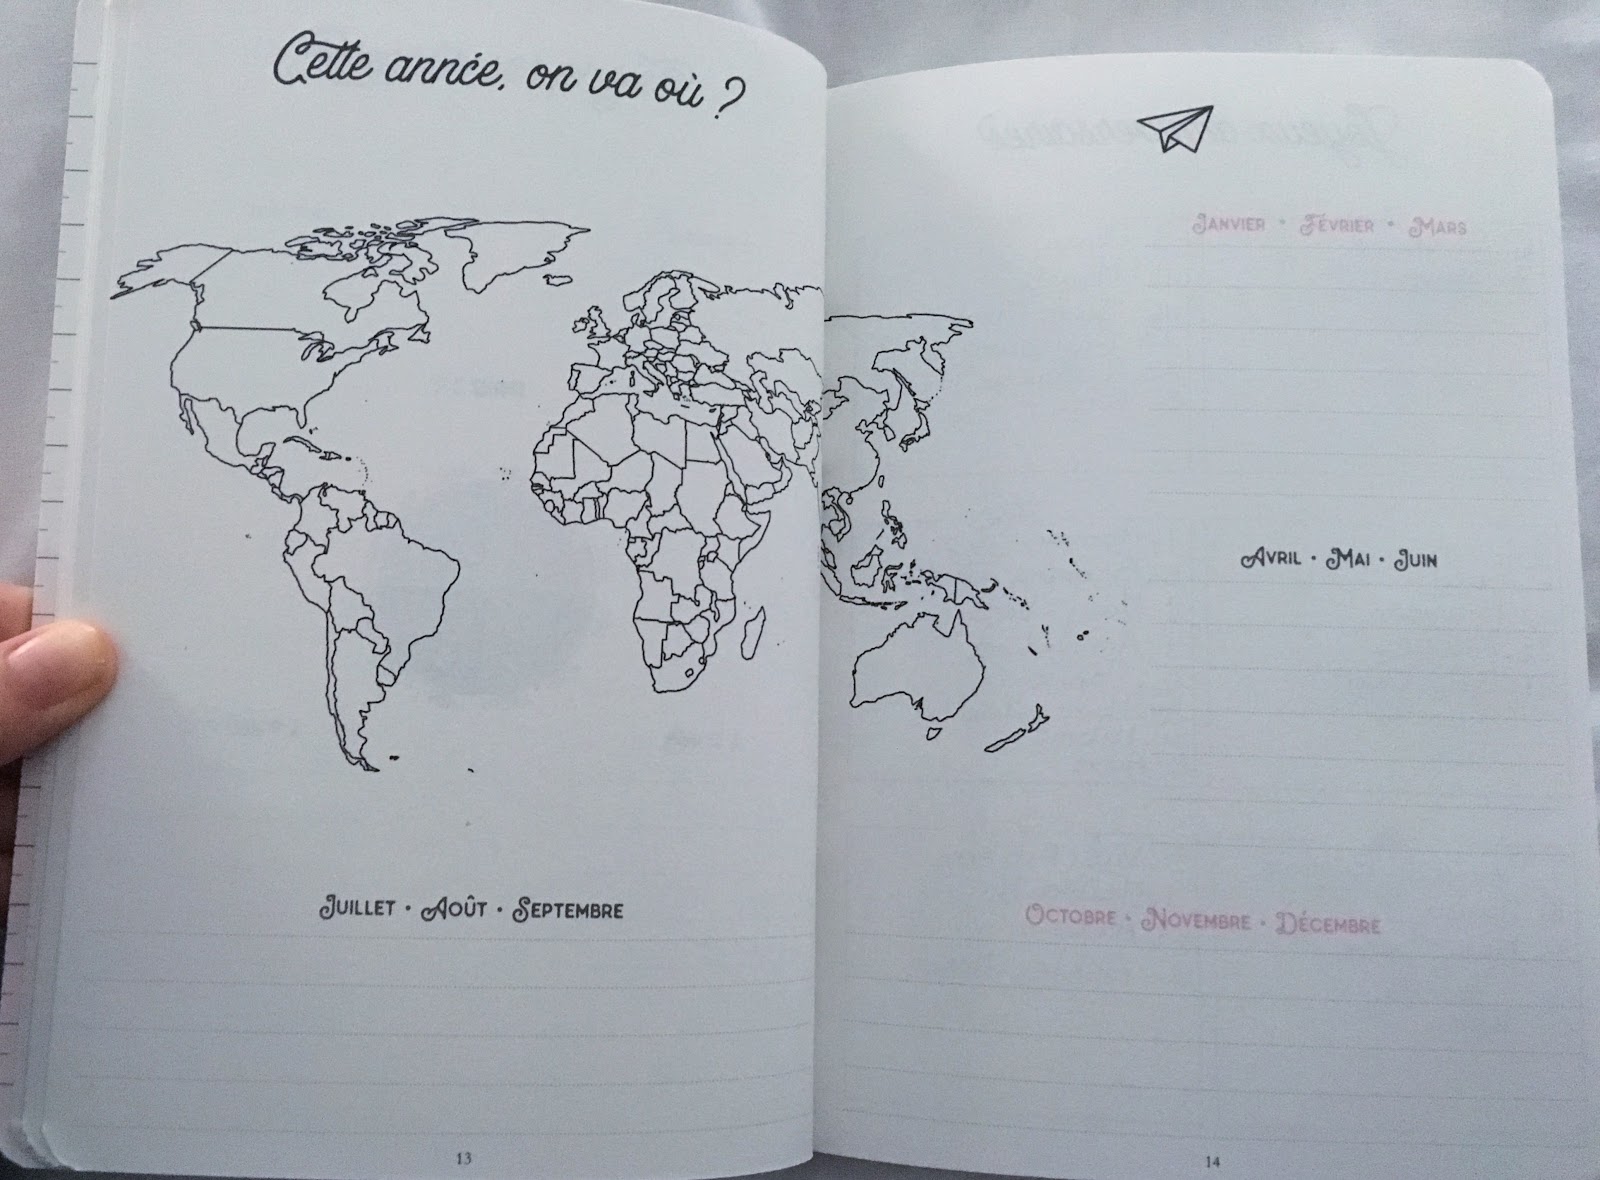 Cette année, on va où ?
Juillet • Août • Septembre
13
Janvier • Février • Mars
Avril • Mai • Juin
Octobre • Novembre • Décembre
14